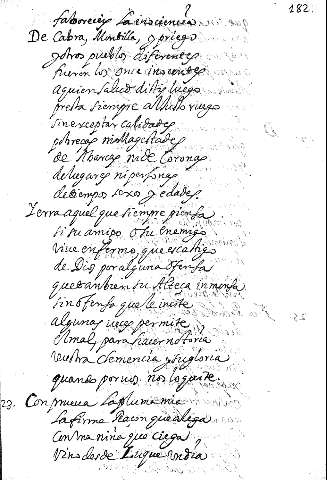 182.
faborecies la inociencia
De Cabra, Montilla, y priego
y otros pueblos diferentes
fueron los once inocentes
a quien salud distes luego
presta siempre al ruego
sin exceptar calidades
pobrecas ni Magestades
de Abarcas ni de Coronas
de lugares ni personas
de tiempos sexos y edades
Yerra aquel que siempre piensa
si su amigo o su enemigo
vive enfermo, que es castigo
de Dios por alguna ofensa
que tambien su Alteca inmensa
sin ofensa que le incite
algunas veces permite
el mal, para hacer notoria
vuestra clemencia y su gloria
quando por vos nos lo quite.
23. Con prueva la pluma mia
la firma Raçon que alega
con una niña que ciega
vino desde Luque un dia